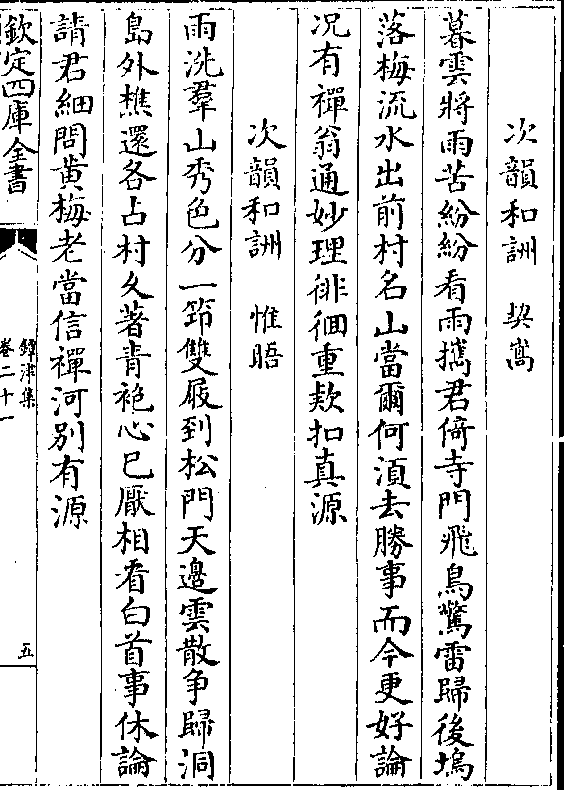 次韻和詶　契嵩
暮雲將雨苦紛紛看雨攜君倚寺門飛鳥驚雷歸後塢
落梅流水出前村名山當爾何須去勝事而今更好論
况有禪翁通妙理徘徊重欵扣真源
次韻和詶　惟晤
雨洗羣山秀色分一笻雙屐到松門天邉雲散争歸洞
島外樵還各占村久著青袍心已厭相看白首事休論
請君細問黄梅老當信禪河别有源
欽定四庫全書
鐔津集
卷二十一
五